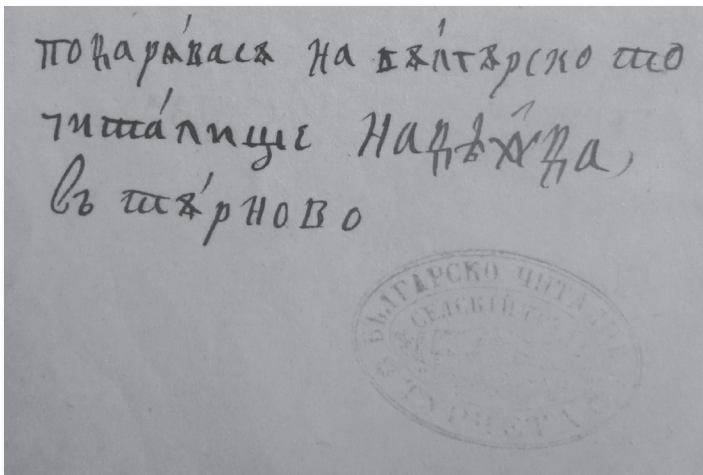 подарѫ́васѫ на бѫ́лгѫрско то
чита́лище Надѣ́жда,
въ тѫ́рново
БЪЛГАРСКО ЧИТАЛИЩЕ
СЕЛСКІЙ